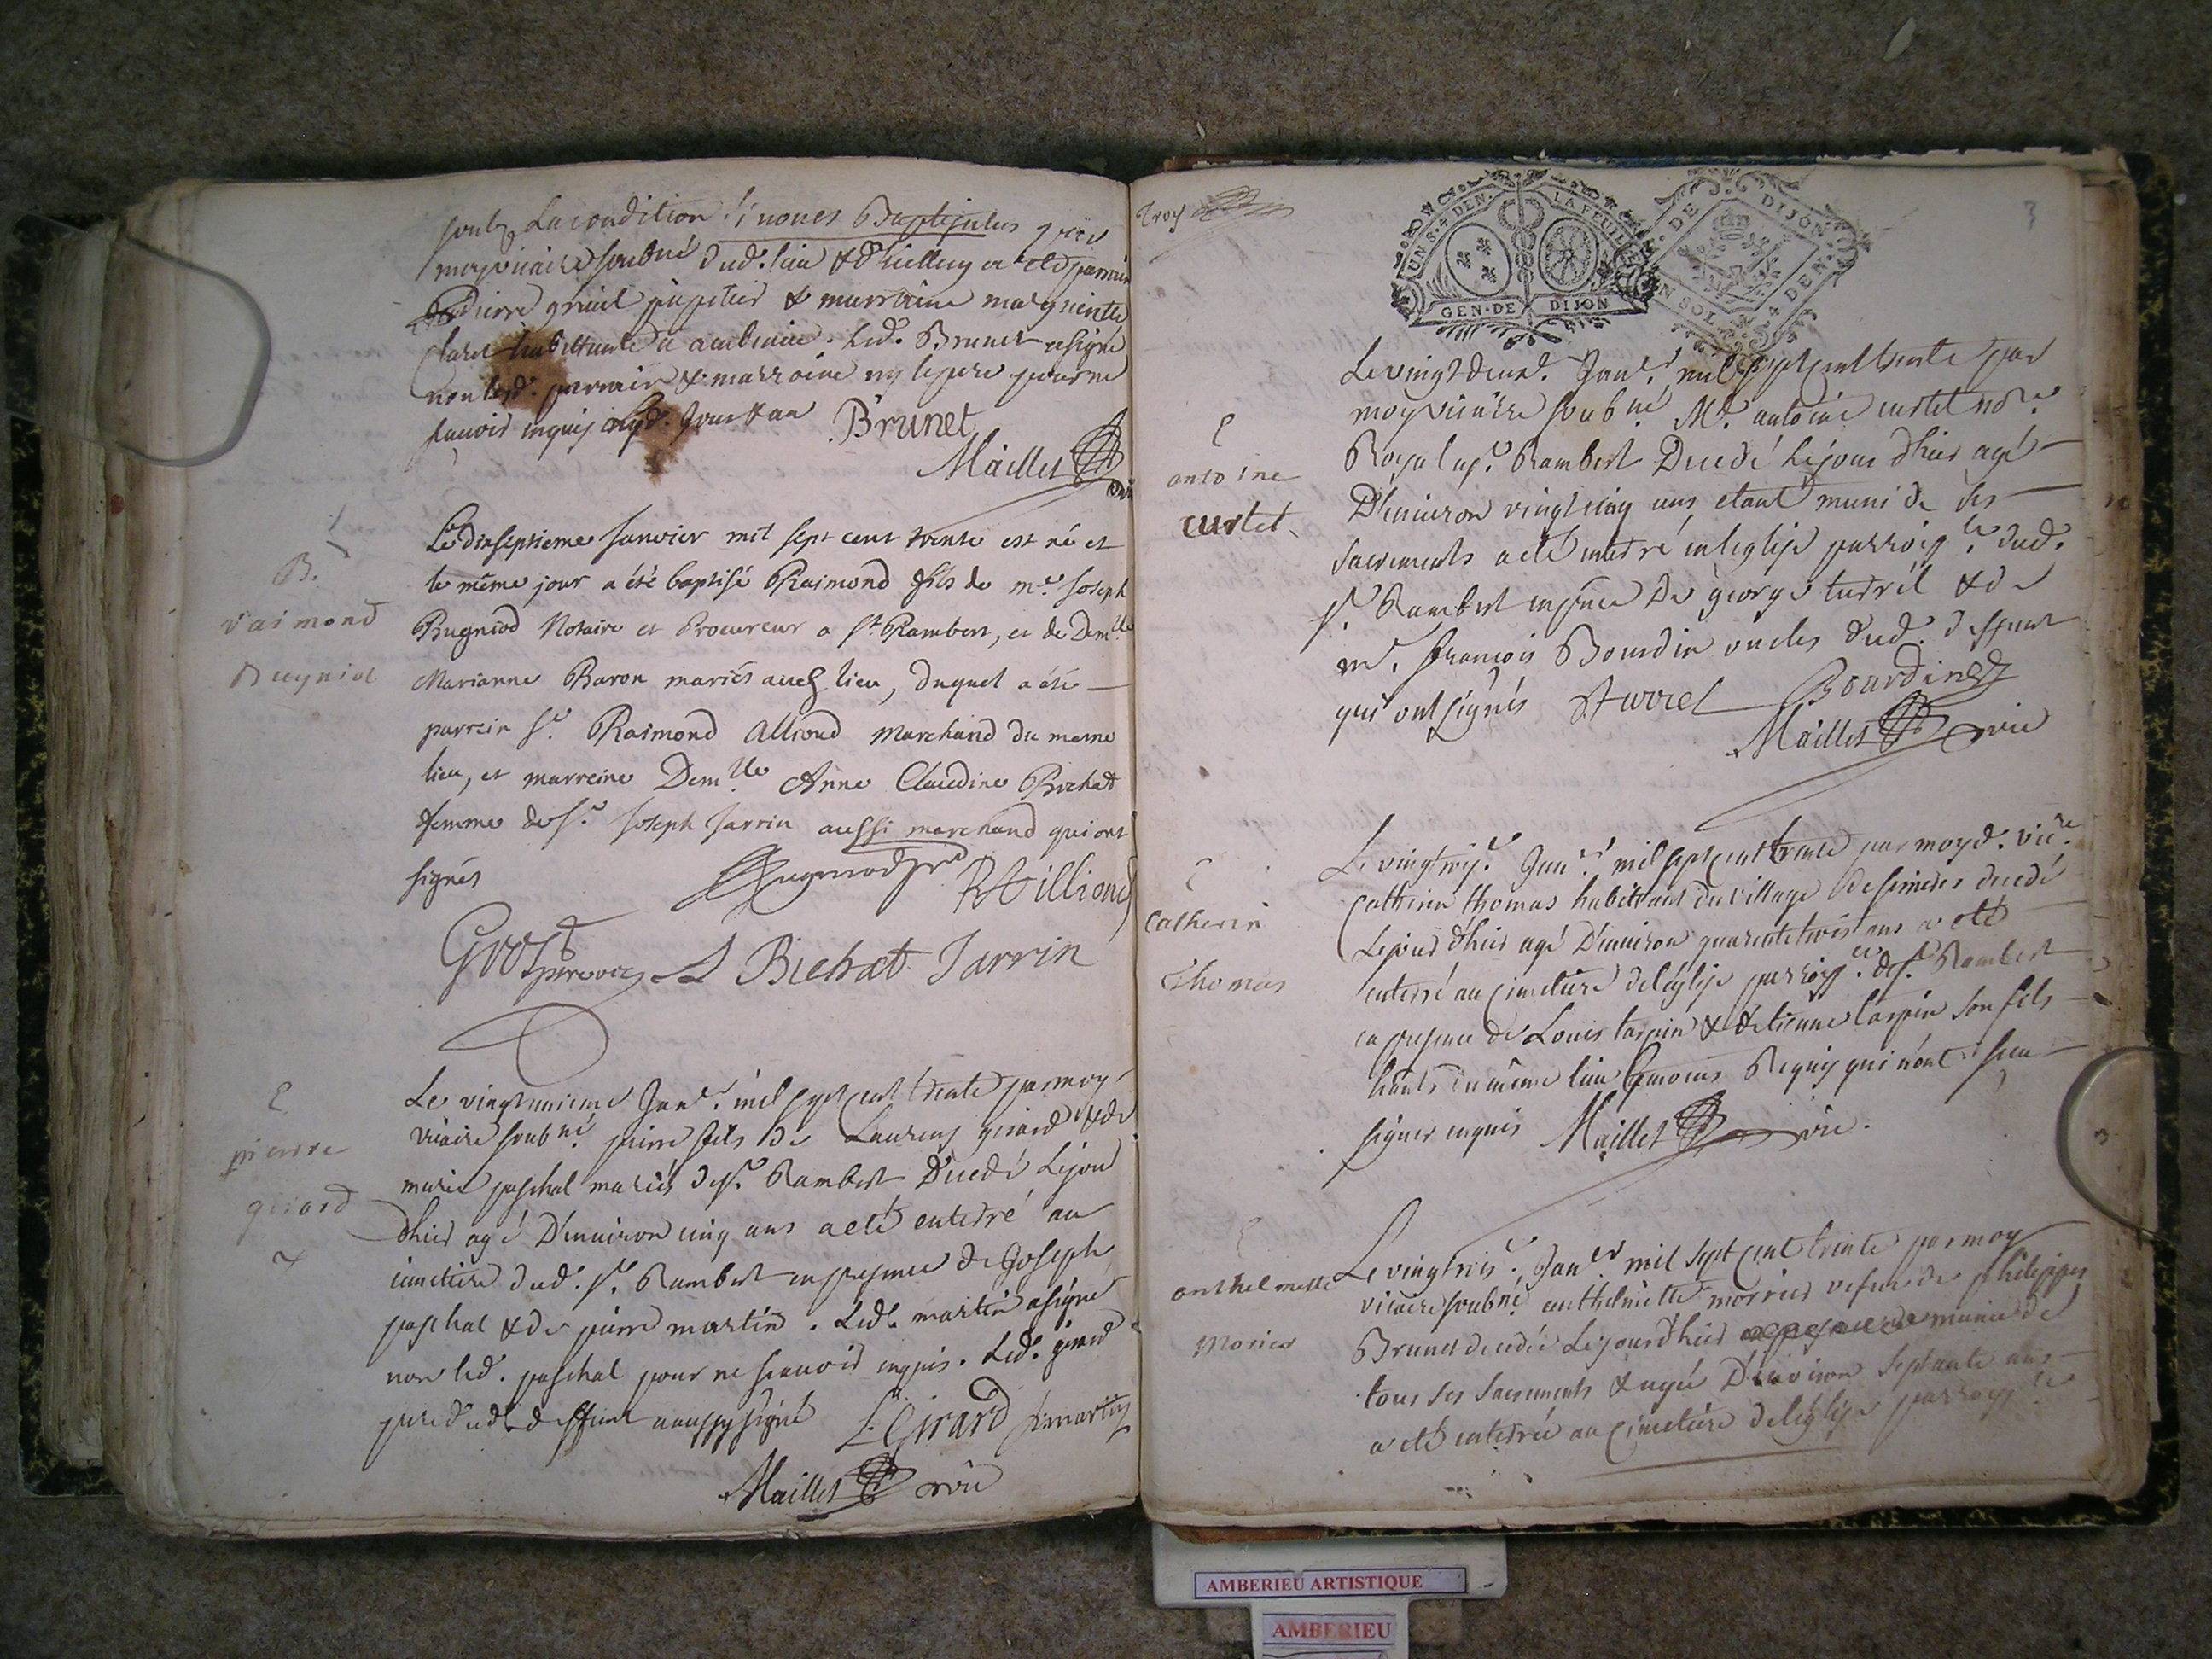 soubz la condition si nones Baptisatus par
moy vicaire soubné dud. lieu
pierre & marraine
habittante a . Led. Brunet a signé
non lesd. parrain & marraine ny le pere pour ne
scavoir enquis jour & an Brunet
Maillet vic
B.
raimond
Bugniod
Le dixseptieme Janvier mil sept cent trente est né et
le même jour a été baptisé Raimond fils de me. Joseph
Bugniod Notaire et Procureur a st Rambert, et de Demlle
Marianne Baron mariés aud lieu, duquel a été
parrein Sr. Raimond Alliond Marchand du meme
lieu, et marreine Demlle Anne Claudine Bichat
femme de Sr. Joseph Jarrin aussi marchand qui ont
signés
A Bichat Jarrin
E
pierre
girard
Le vingtunieme Janr. mil sept cent trente par moy
vicaire soubné pierre fils de Laurens girard & de
marie paschal mariés de st. Rambert Decedé Le jour
dhier agé D'environ cinq ans a eté enterré au
cimetiere dud. st. Rambert en presence de Joseph
paschal & de pierre martin . Led. martin a signé
non led. paschal pour ne scavoir enquis. Led. girard
pere dud. deffunt a aussy signé L. Girard p. martin
Maillet vic
Troys
3
UN S. 4 DEN. LA FEUILLE
GEN. DE DIJON
DE DIJON
UN SOL 4 DEN.
E
antoine
curtet
Le vingt deuxe. Janr. mil sept cent trente par
moy vicaire soubné Me. antoine curtet nore
Royal a st. Rambert Decedé le jour dhier agé
D'environ vingt cinq ans etant muni de ses
sacrements a eté enterré en leglise parroisle dud.
st. Rambert en pnce De george turrel & de
me. françois Bourdin oncles dud. deffunt
qui ont signés turrel Bourdin
Maillet vic
E
Catherin
Thomas
Le vingtroise. Janr. mil sept cent trente par moyd. vicre
Catherin thomas habittant du village de decedé
Le jour d'hier agé D'environ quarente trois ans a eté
enterré au cimetiere de leglise parroisle de st. Rambert
en presence de Louis tarpin & d'etienne tarpin son fils
habts du même lieu temoins Requis qui n'ont sceu
signer enquis Maillet vic.
E
anthelmette
Morier
Le vingtroise. Janr mil sept cent trente par moy
vicaire soubné anthelmette morrier vefve de philippes
Brunet decedée Le jour d'hier munie de
tous ses sacrements & agée D'environ septante ans
a eté enterrée au cimetiere de leglise parroisle
AMBERIEU ARTISTIQUE
AMBERIEU